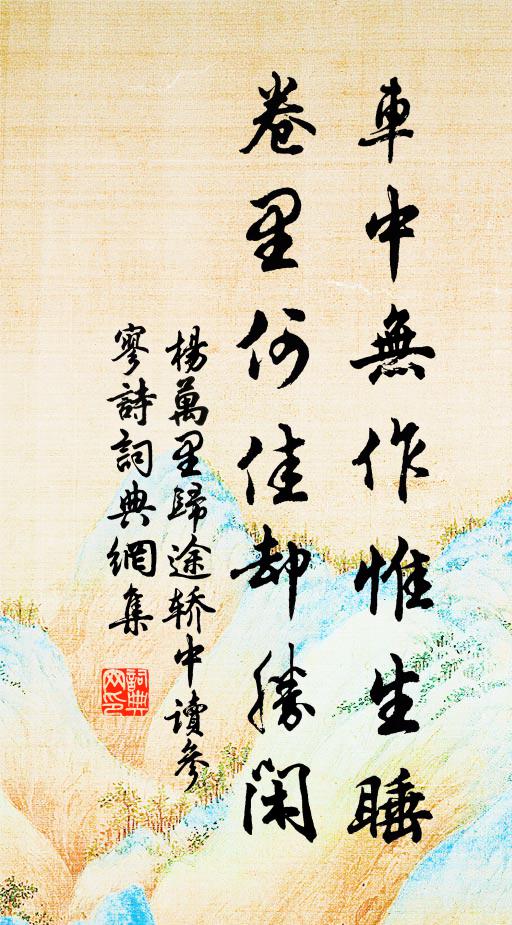 車中無作惟生睡
卷里何佳却勝閑
楊萬里歸途轿中讀參
寥詩詞典網集
詞典
网印